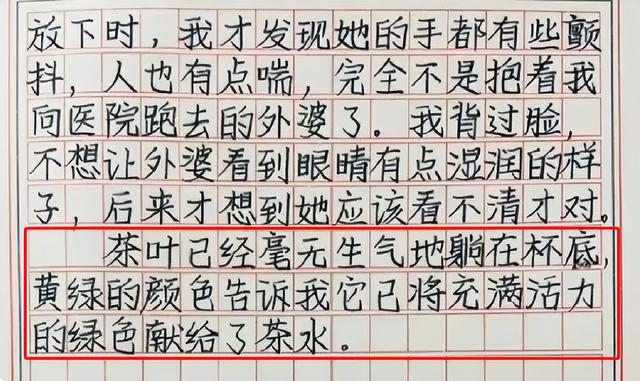 放下时，我才发现她的手都有些颤
抖，人也有点喘，完全不是抱着我
向医院跑去的外婆了。我背过脸，
不想让外婆看到眼睛有点湿润的样
子，后来才想到她应该看不清才对。
茶叶已经毫无生气地躺在杯底，
黄绿的颜色告诉我它已将充满活力
的绿色献给了茶水。